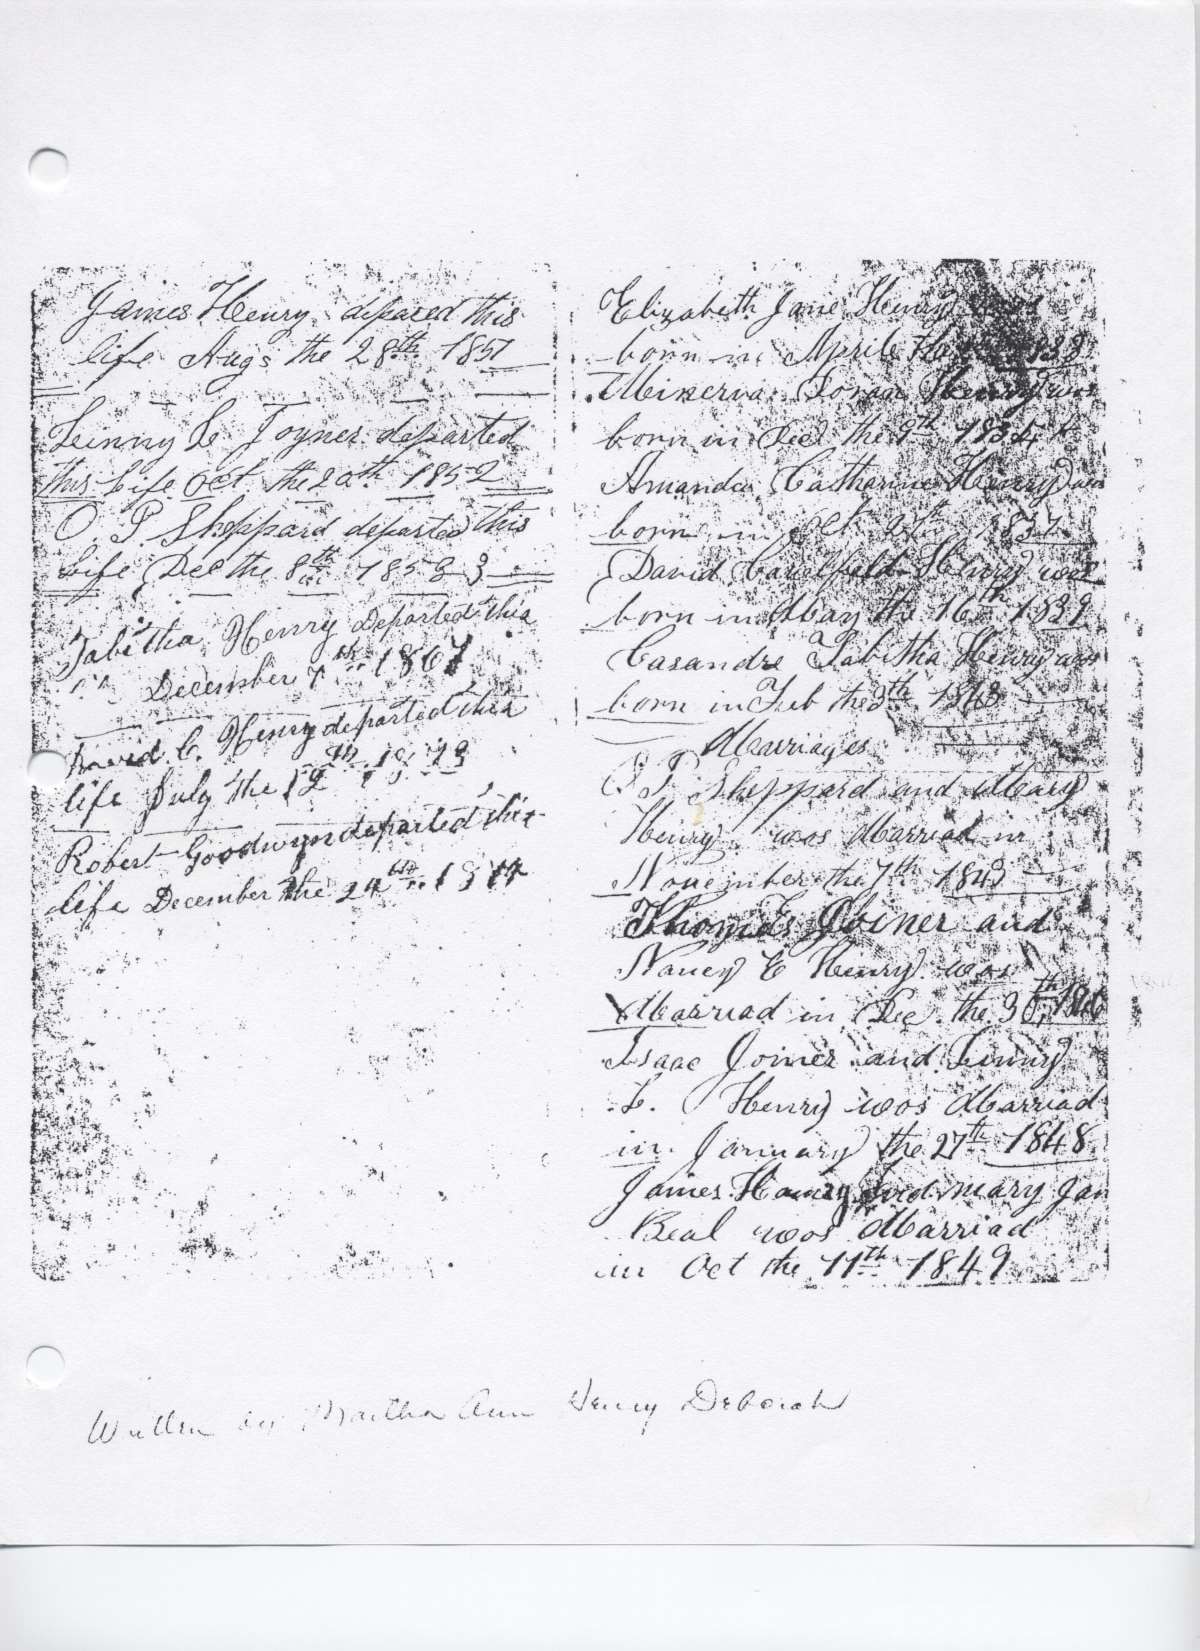 James Henry depared this
life Augs the 28th 1851
Linny L Joyner departed
this Life Oct the 20th 1852
O P Sheppard departed this
Life Dec the 8th 185
Tabitha Henry departed this
December 7 th 1867
David C. Henry departed this
life July the 12 th
Robert Goodwyn departed this
life December the 24 th
Elizabeth Jane Henry was
born in Aprile
Minerva Henry was
born in Dec the 9th 1834
Amanda Catharine Henry was
born in Oct 27th 1837
David Henry was
born in May the 16th 1839
Casandre Tabitha Henry was
born in Feb the 3th 1843
Marriages
Sheppard and Mary
Henry was Marriad in
November the 7th 1843
Thomas Joiner and
Nancy E Henry was
Marriad in Dec the 30th, 1846
Isaac Joiner and Linny
L. Henry was Marriad
in January the 27th 1848
James Henry and mary Jan
Beal was Marriad
in Oct the 11th 1849
Written by Martha Ann Henry Deborah